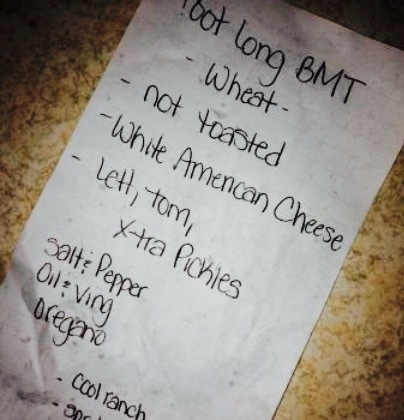 foot long BMT
- Wheat -
- not toasted
- White American Cheese
- Lett, tom,
X-tra Pickles
Salt & Pepper
Oil & Ving
Oregano
- Cool ranch